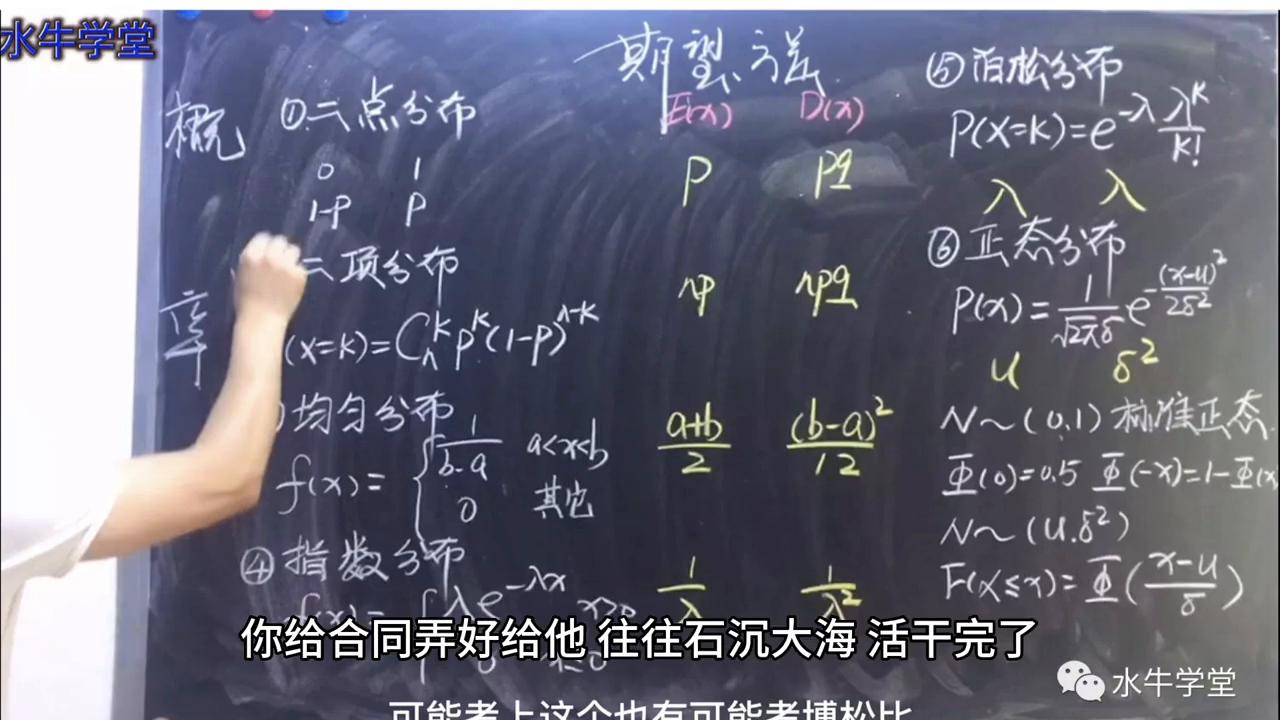 水牛学堂
期望 方差
E(x) D(x)
概率
①二点分布
0 1
1-P P
P Pq
二项分布
(x=k)=C_n^k p^k (1-p)^{n-k}
np npq
均匀分布
f(x)= { 1/(b-a) a<x<b
0 其它
(a+b)/2 (b-a)^2/12
④指数分布
f(x)= { λe^{-λx} x>0
0 x≤0
1/λ 1/λ^2
⑤泊松分布
P(X=K)=e^{-λ} λ^K/K!
λ λ
⑥正态分布
P(x)=1/(√2π δ) e^{-(x-u)^2/2δ^2}
u δ^2
N~(0,1)标准正态
Φ(0)=0.5 Φ(-x)=1-Φ(x
N~(u.δ^2)
F(X≤x)=Φ((x-u)/δ)
你给合同弄好给他 往往石沉大海 活干完了
水牛学堂
可能考上这个也有可能考博松比